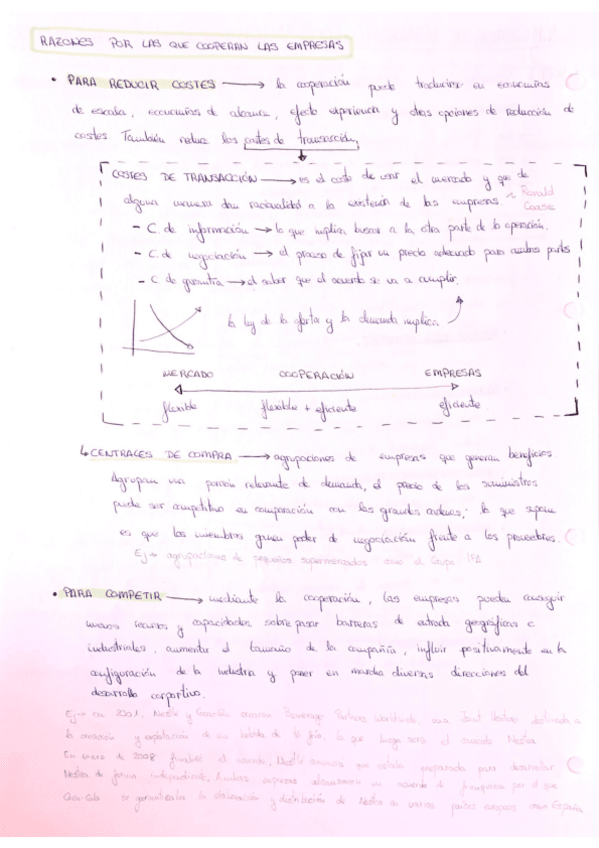 RAZONES POR LAS QUE COOPERAN LAS EMPRESAS
• PARA REDUCIR COSTES → la cooperación puede traducirse en economías
de escala, economías de alcance, efecto experiencia y otras opciones de reducción de
costes. También reduce los costes de transacción.
COSTES DE TRANSACCIÓN → es el costo de usar el mercado y que de
alguna manera dan racionalidad a la existencia de las empresas. ~ Ronald
Coase
- C. de información → lo que implica buscar a la otra parte de la operación.
- C. de negociación → el proceso de fijar un precio adecuado para ambas partes
- C. de garantía → el saber que el acuerdo se va a cumplir.
la ley de la oferta y la demanda implica
MERCADO COOPERACIÓN EMPRESAS
flexible flexible + eficiente eficiente
↳ CENTRALES DE COMPRA → agrupaciones de empresas que generan beneficios.
Agrupan una porción relevante de demanda, el precio de los suministros
puede ser competitivo en comparación con las grandes cadenas; lo que supone
es que los miembros ganen poder de negociación frente a los proveedores.
Ej → agrupaciones de pequeños supermercados como el Grupo IFA
• PARA COMPETIR → mediante la cooperación, las empresas pueden conseguir
nuevos recursos y capacidades, sobrepasar barreras de entrada geográficas e
industriales, aumentar el tamaño de la compañía, influir positivamente en la
configuración de la industria y poner en marcha diversas direcciones del
desarrollo corportivo.
Ej → en 2001, Nestlé y Coca-Cola crearon Beverage Partners Worldwide, una Joint Venture destinada a
la creación y explotación de un bebida de té frío, lo que luego sería el conocido Nestea.
En enero de 2008 finalizó el acuerdo, Nestlé anuncia que estaba preparada para desarrollar
Nestea de forma independiente. Ambas empresas alcanzaron un acuerdo de franquicia por el que
Coca-Cola se garantizaba la elaboración y distribución de Nestea en varios países europeos como España